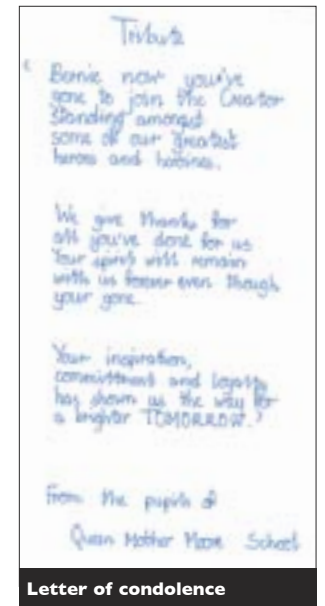 Tribute
' Bernie now you've
gone to join the Creator
Standing amongst
some of our greatest
heroes and heroines.
We give thanks for
all you've done for us
Your spirit will remain
with us forever even though
your gone.
Your inspiration,
committment and loyalty
has shown us the way for
a brighter TOMORROW.'
From the pupils of
Queen Mother Moore School
Letter of condolence